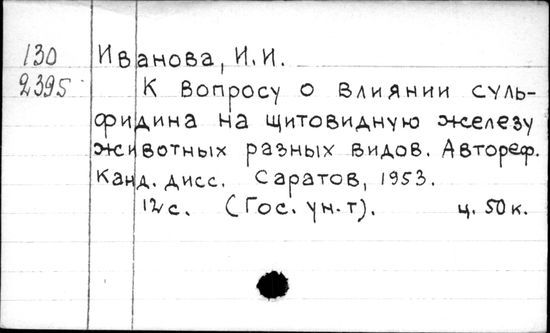 130 Иванова, И.И.
2395 К вопросу о влиянии суль-
фидина на щитовидную железу
животных разных видов. Автореф.
Канд. дисс. Саратов, 1953.
12 с. (Гос. ун-т). ц. 50 к.